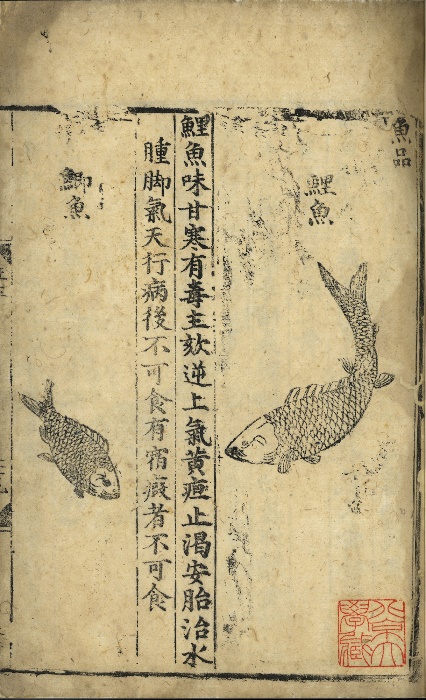 魚品
鯉魚
鯉魚味甘寒有毒主欬逆上氣黃疸止渴安胎治水
腫脚氣天行病後不可食有宿瘕者不可食
鯽魚